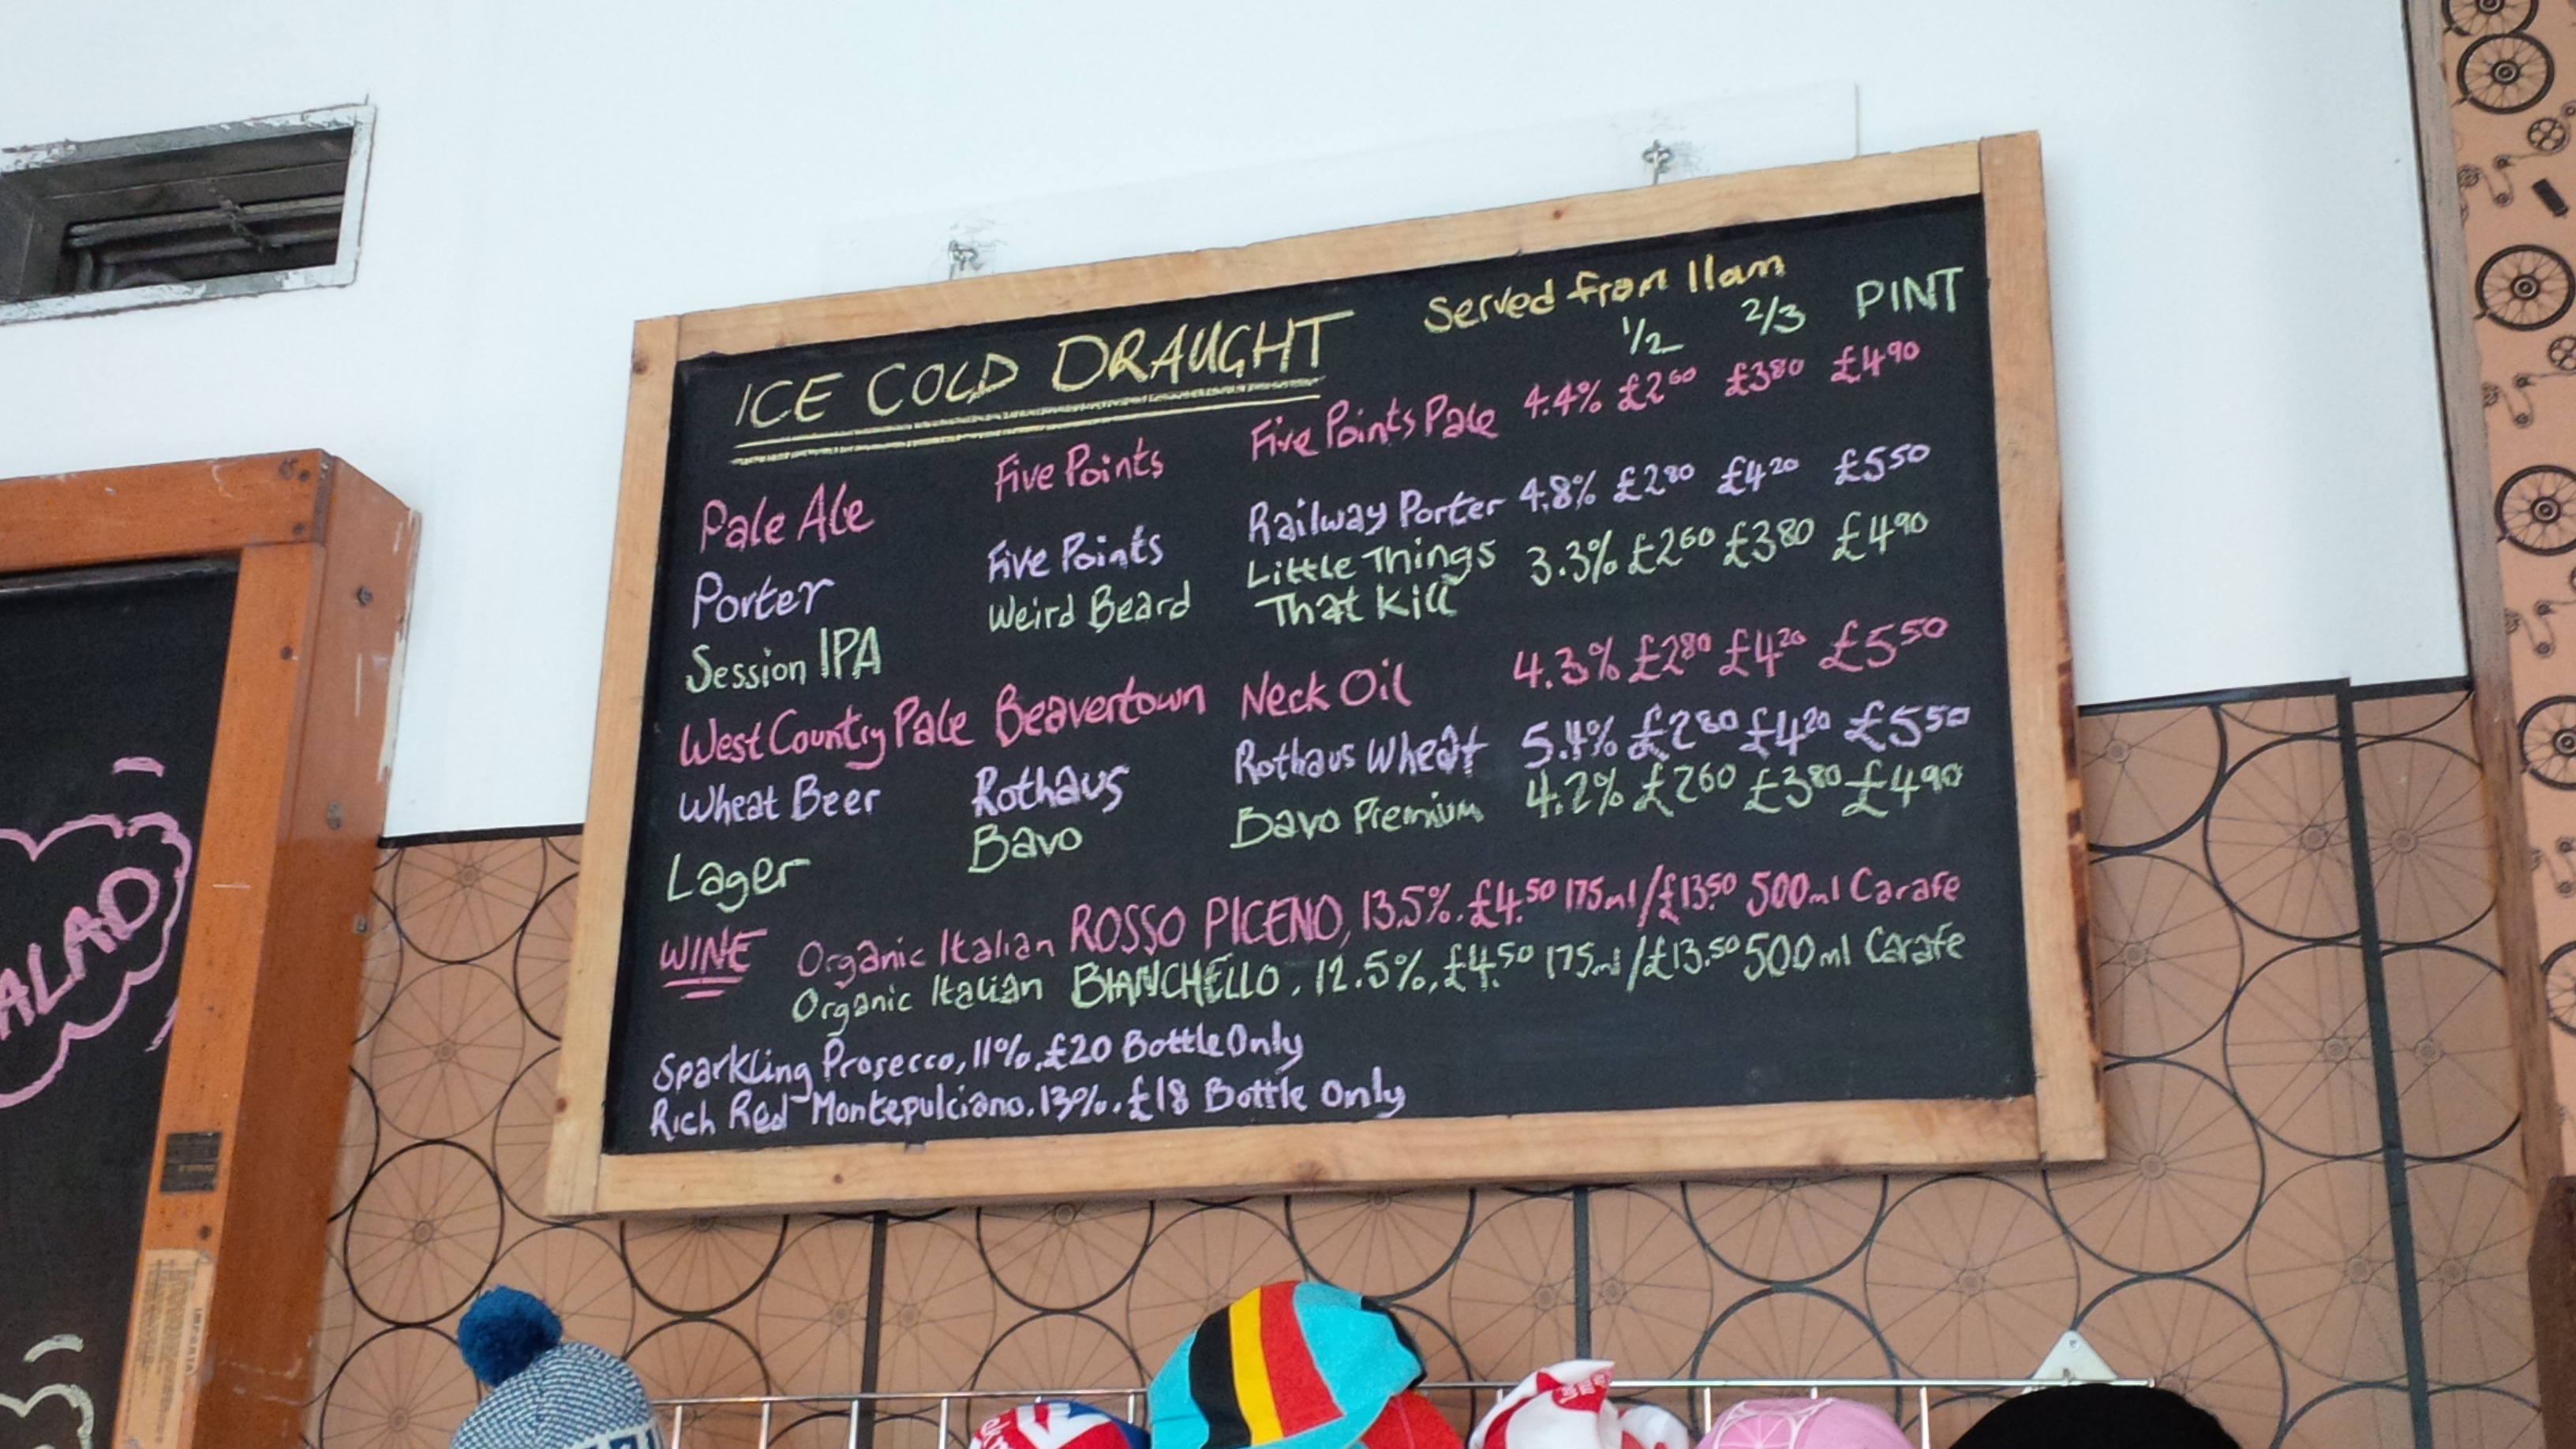 ICE COLD DRAUGHT Served from 11am
1/2 2/3 PINT
Pale Ale Five Points Five Points Pale 4.4% £260 £380 £490
Porter Five Points Railway Porter 4.8% £280 £420 £550
Session IPA Weird Beard Little Things That Kill 3.3% £260 £380 £490
West Country Pale Beavertown Neck Oil 4.3% £280 £420 £550
Wheat Beer Rothaus Rothaus Wheat 5.4% £280 £420 £550
Lager Bavo Bavo Premium 4.2% £260 £380 £490
WINE Organic Italian ROSSO PICENO, 13.5%. £4.50 175ml/£13.50 500ml Carafe
Organic Italian BIANCHELLO. 12.5%, £4.50 175ml/£13.50 500ml Carafe
Sparkling Prosecco, 11%. £20 Bottle Only
Rich Red Montepulciano. 13%. £18 Bottle Only
ALAD